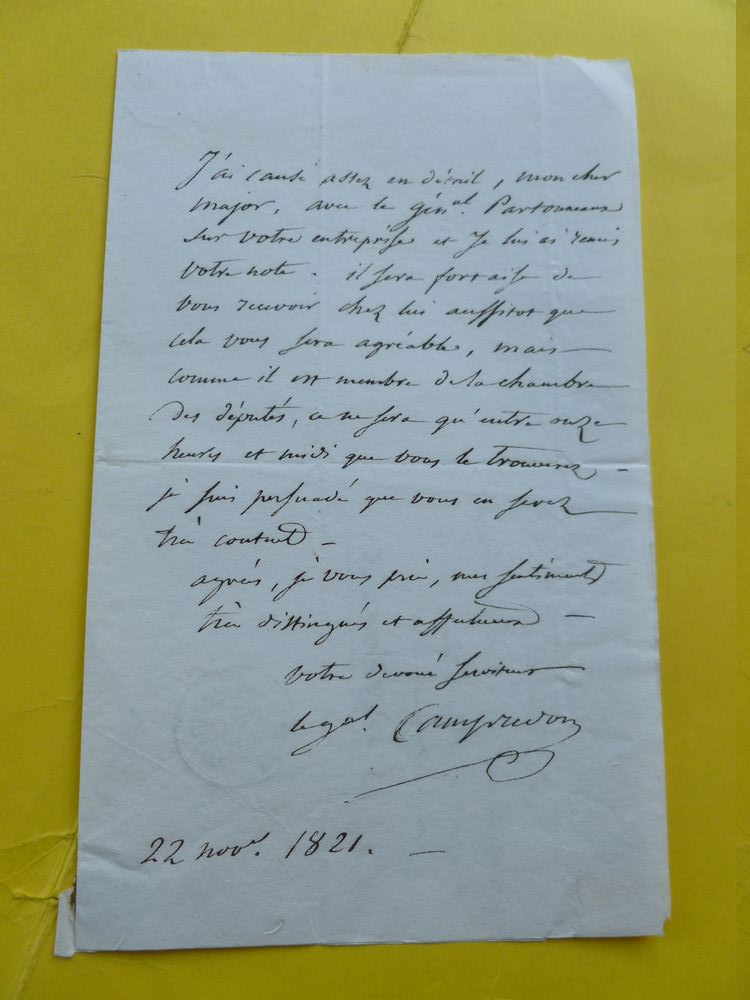 J'ai causé assez en détail, mon cher
major, avec le gén.al Partouneaux
sur votre entreprise et je lui ai remis
votre note. il sera fort aise de
vous recevoir chez lui aussitot que
cela vous sera agréable, mais
comme il est membre de la chambre
des députés, ce ne sera qu'entre onze
heures et midi que vous le trouverez –
je suis persuadé que vous en serez
très content –
agréés, je vous prie, mes sentiments
très distingués et affectueux –
votre devoué serviteur
le gal. Campredon
22 nov.el 1821. –